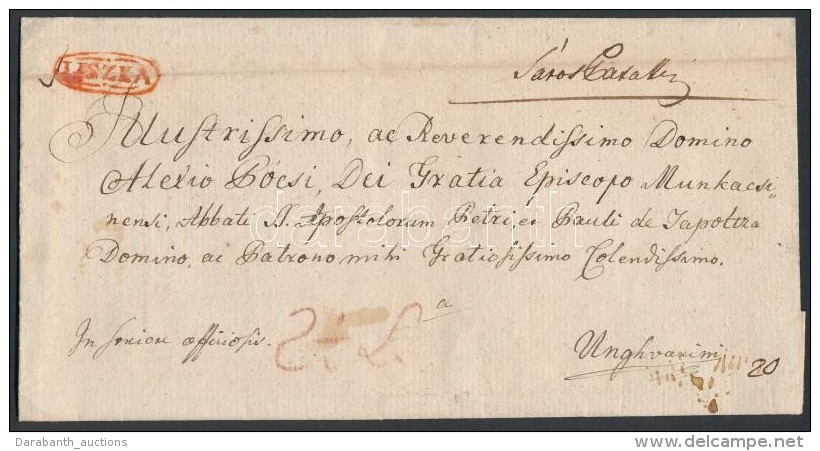 LISZKA
Sáros Patakk
Illustrissimo, ac Reverendissimo Domino
Alexio Pócsi, Dei Gratia Episcopo Munkacsi„
nensi, Abbati SS. Apostolorum Petri et Pauli de Tapoltza
Domino, ac Patrono mihi Gratiosissimo Colendissimo.
a
officiosis.
Unghvarini
20
darabanth
Darabanth_auctions
www.delcampe.net